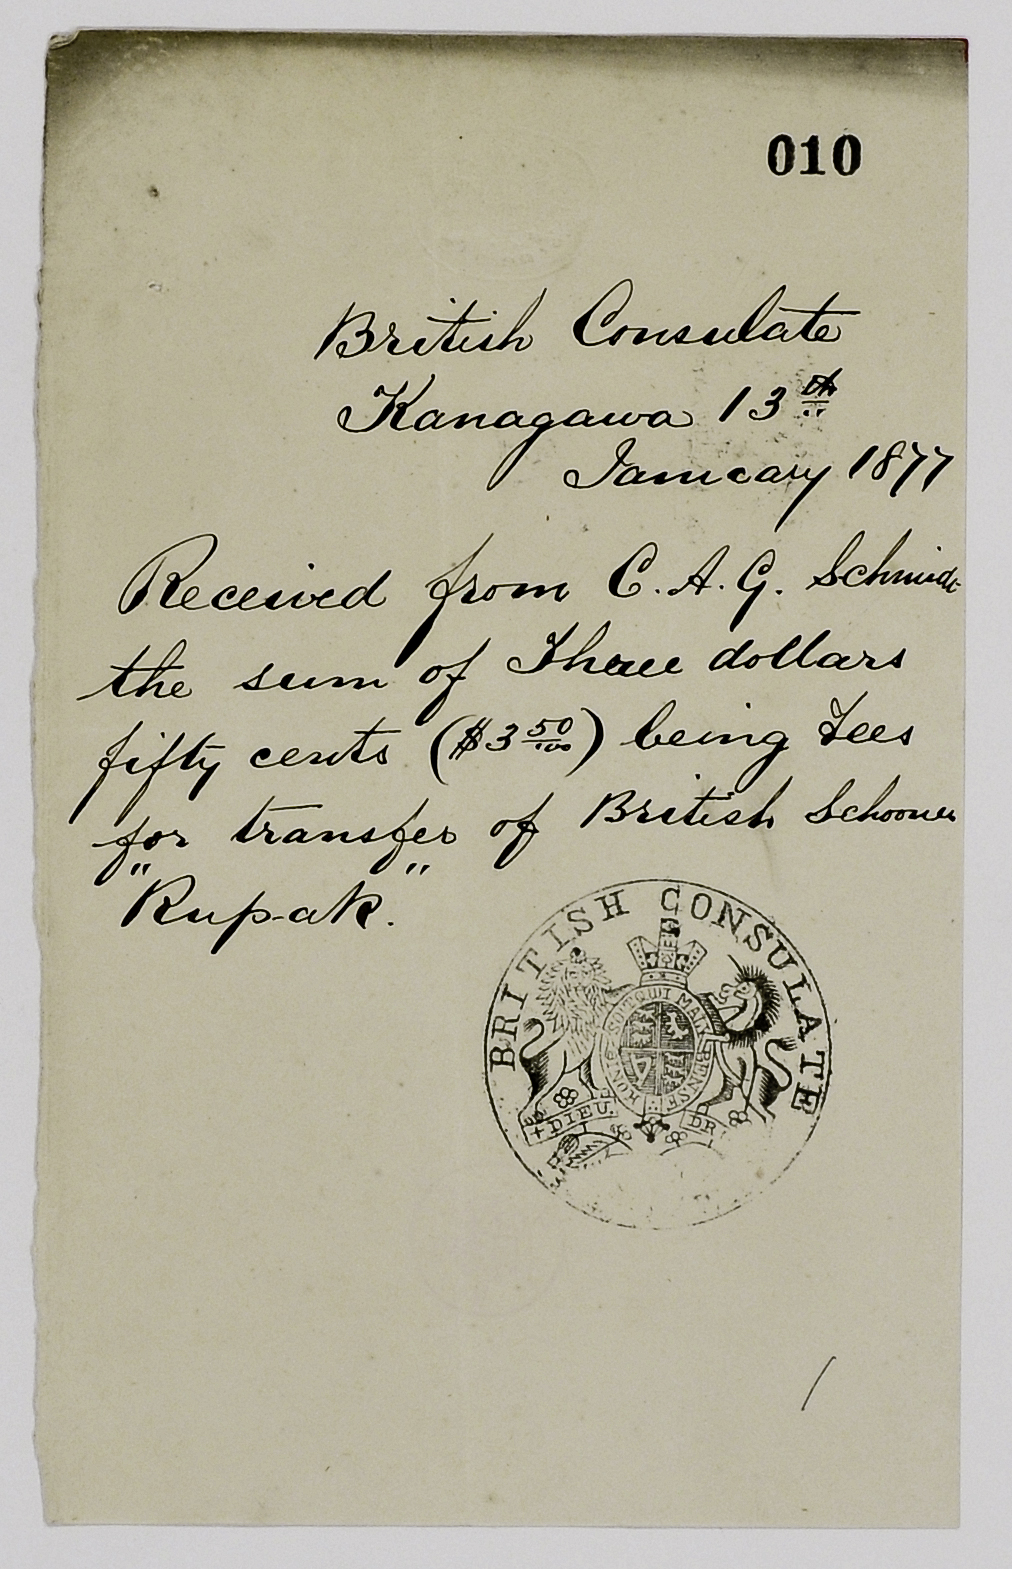 010
British Consulate
Kanagawa 13th
January 1877
Received from C. A. G. Schmidt
the sum of Three dollars
fifty cents ($3 50/100) being Fees
for transfer of British Schooner
"Rupak".
BRITISH CONSULATE
HONI SOIT QUI MAL Y PENSE
DIEU DR